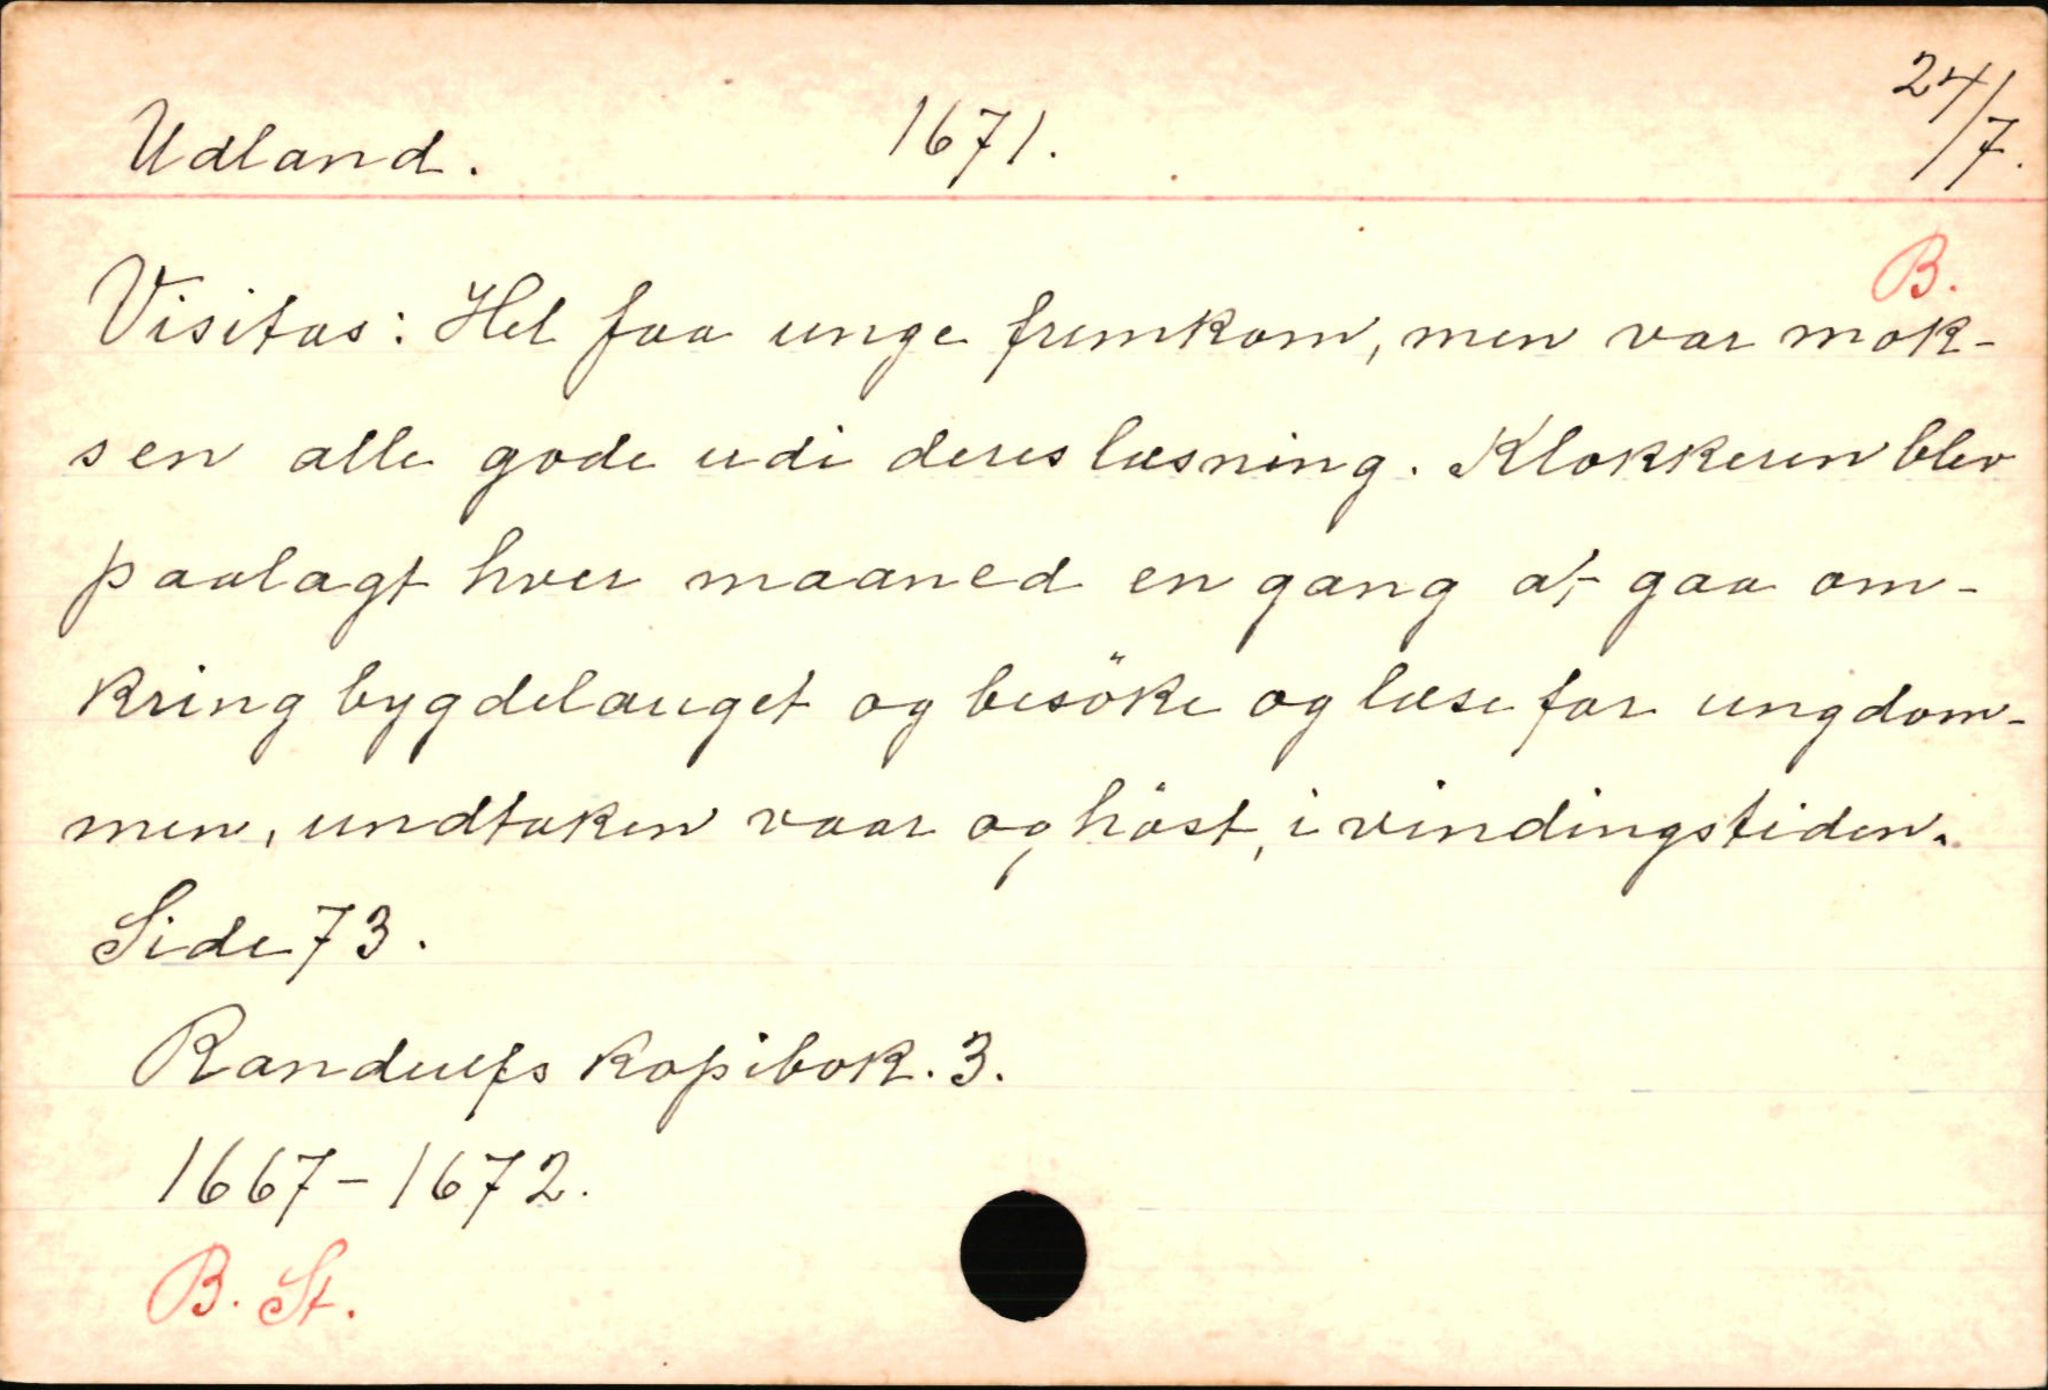 Udland. 1671. 24/7.
B.
Visitas: Hel faa unge fremkom, men var mok-
sen alle gode udi deres læsning. Klokkeren blev
paalagt hver maaned en gang at gaa om-
kring bygdelauget og besöke og læse for ungdom-
men, undtaken vaar og höst, i vindingstiden.
Side 73.
Randulfs kopibok. 3.
1667-1672.
B. St.